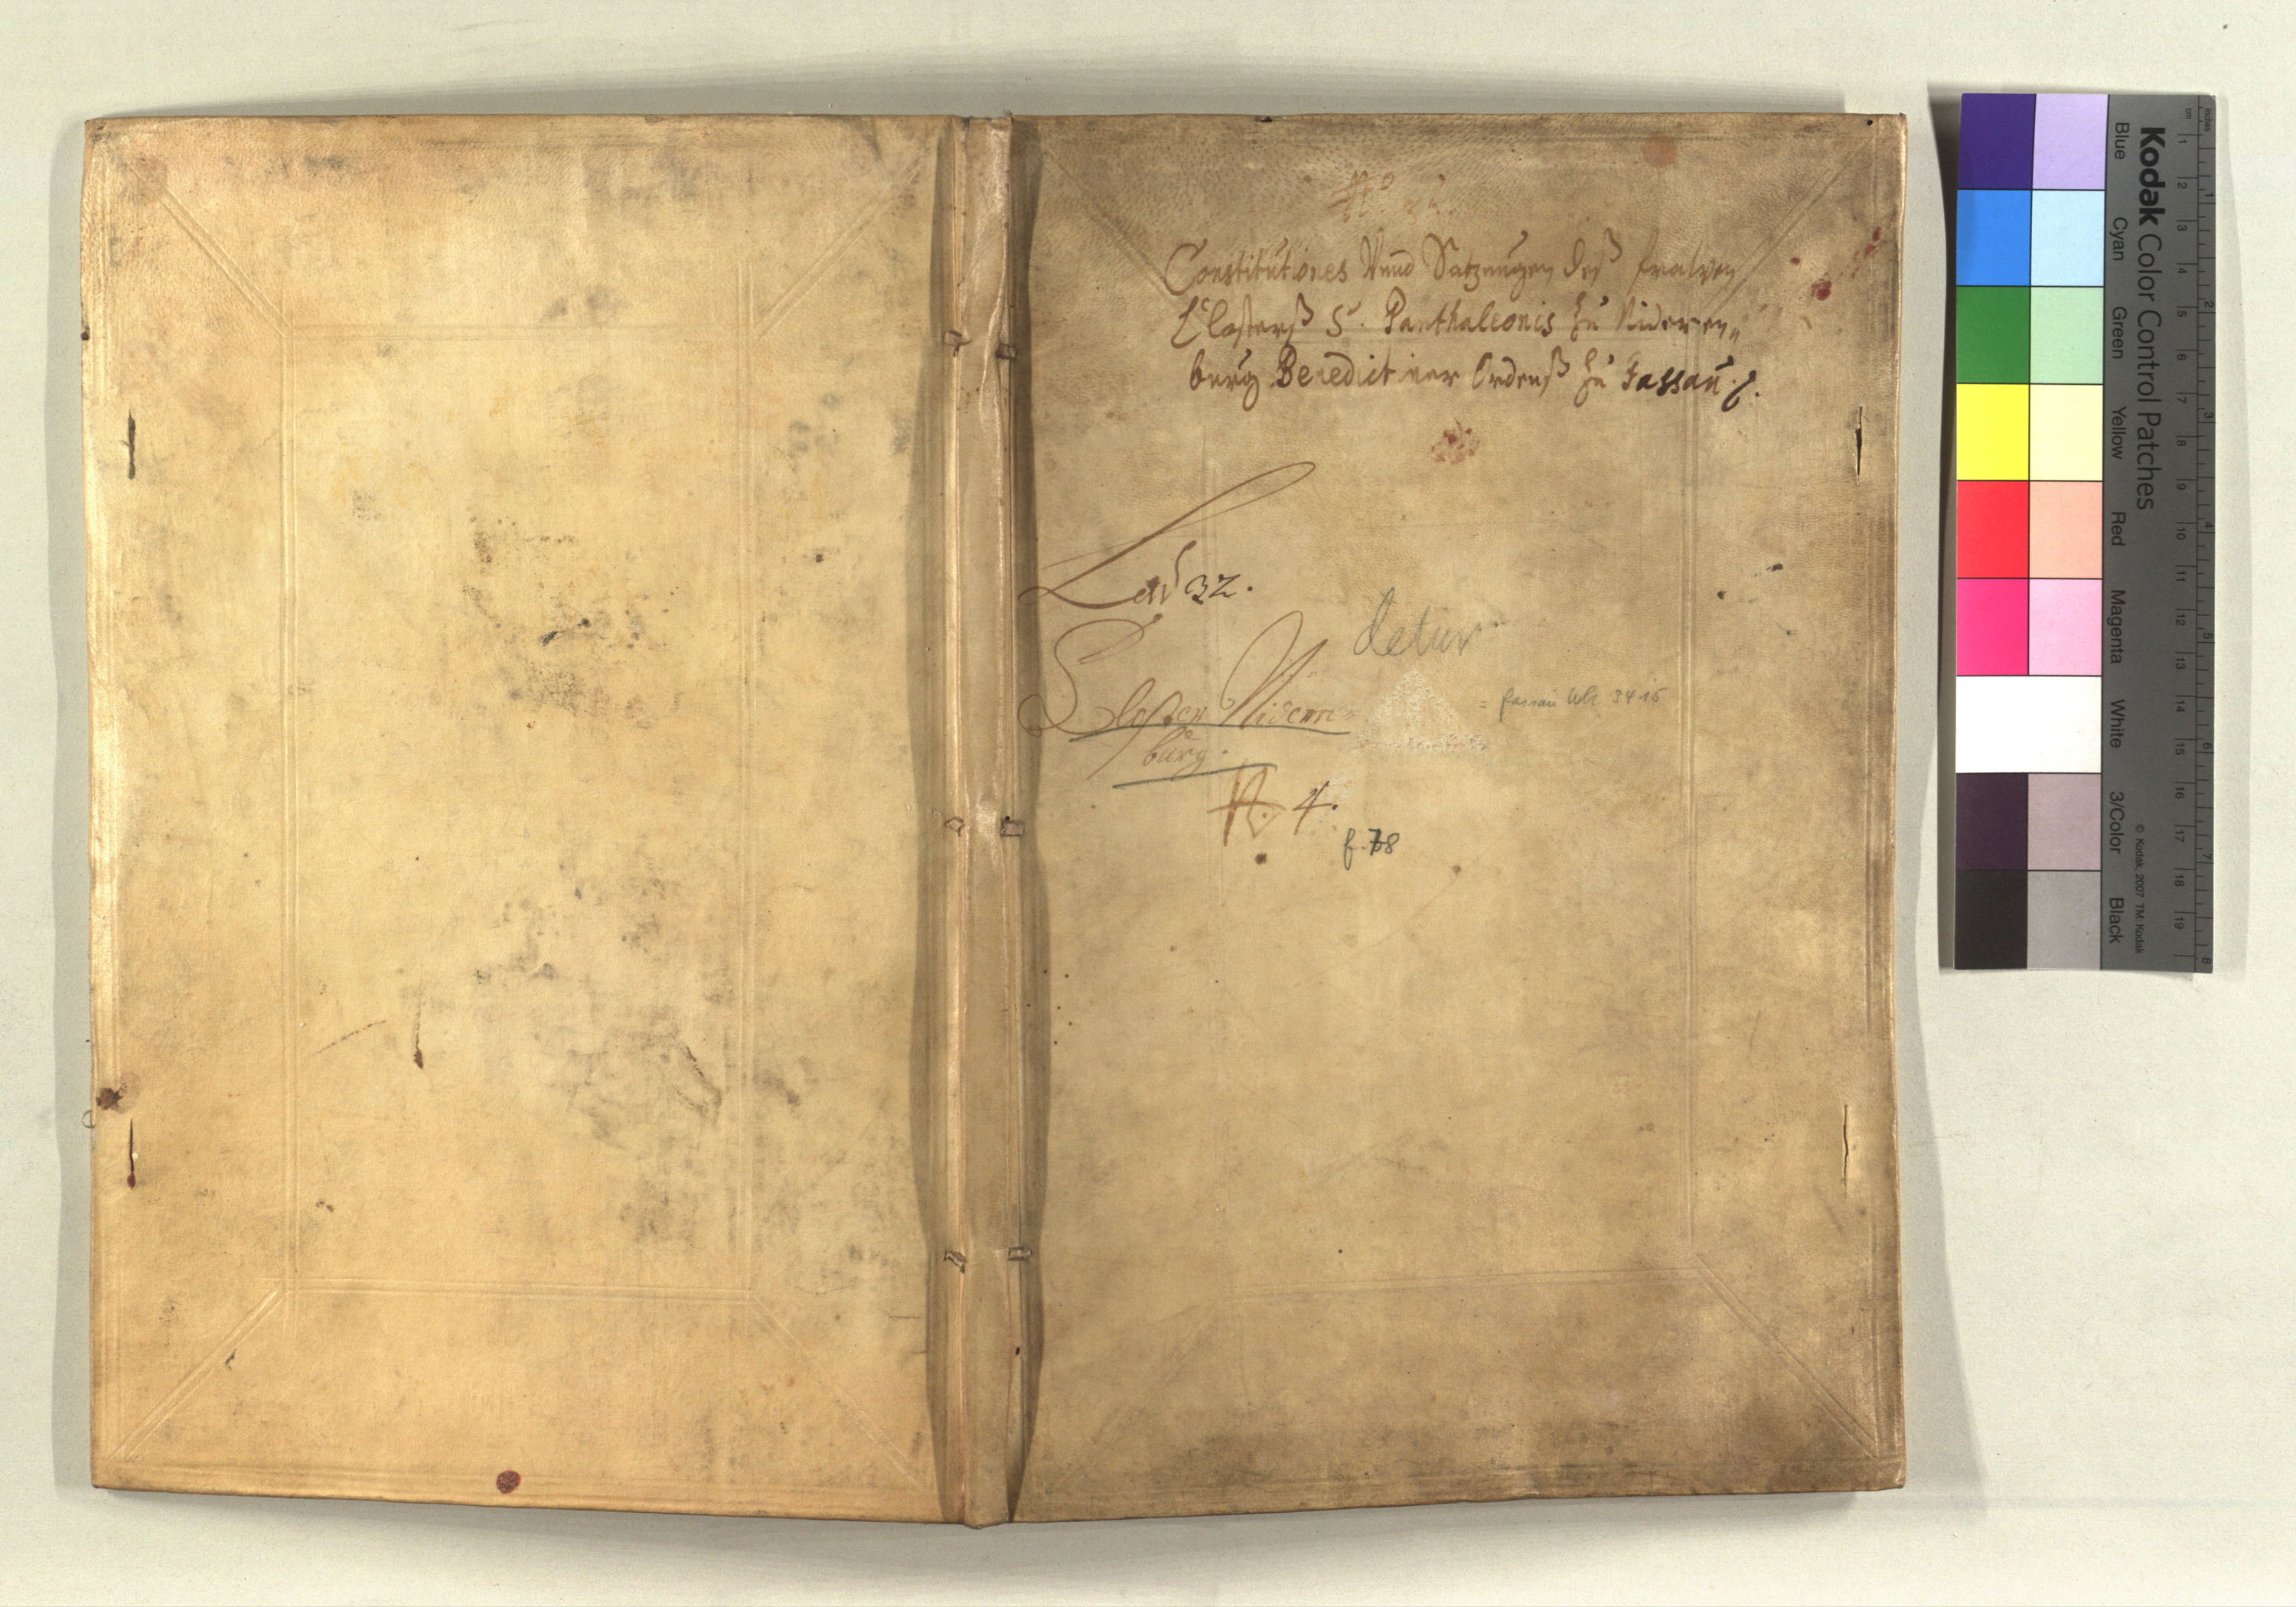 Constitutiones Vnnd Satzungen deß frawen
Closterß S. Panthaleonis zu Nideren„
burg Benedictiner Ordenß zu Passau
Lad 32.
detur
Closter Nidern
burg.
N. 4.
f. 78
Kodak Color Control Patches
Blue Cyan Green Yellow Red Magenta White 3/Color Black
© Kodak, 2007 TM: Kodak
inches 1 2 3 4 5 6 7 8
cm 1 2 3 4 5 6 7 8 9 10 11 12 13 14 15 16 17 18 19